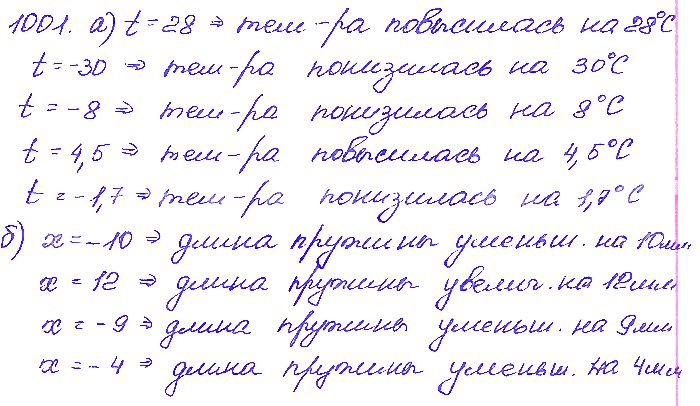 1001. а) t = 28 ⇒ тем-ра повысилась на 28°С
t = -30 ⇒ тем-ра понизилась на 30°С
t = -8 ⇒ тем-ра понизилась на 8°С
t = 4,5 ⇒ тем-ра повысилась на 4,5°С
t = -1,7 ⇒ тем-ра понизилась на 1,7°С
б) x = -10 ⇒ длина пружины уменьш. на 10мм
x = 12 ⇒ длина пружины увелич. на 12мм
x = -9 ⇒ длина пружины уменьш. на 9мм
x = -4 ⇒ длина пружины уменьш. на 4мм